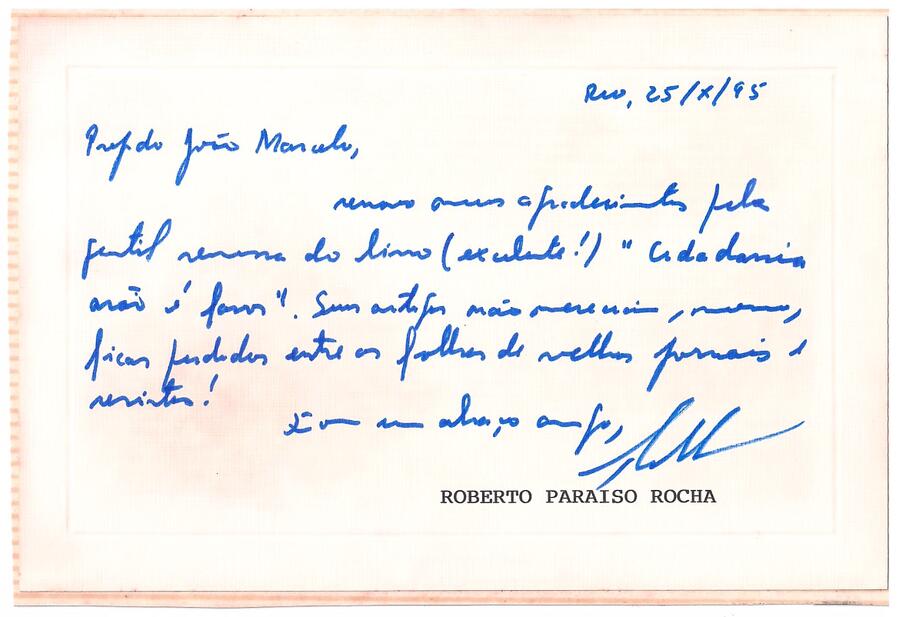 Rio, 25/X/95
Prezado João Marcelo,
renovo meus agradecimentos pela
gentil remessa do livro (excelente!) "Cidadania
não é favor". Seus artigos não mereciam, mesmo,
ficar perdidos entre as folhas de velhos jornais e
revistas!
Com um abraço amigo,
ROBERTO PARAISO ROCHA